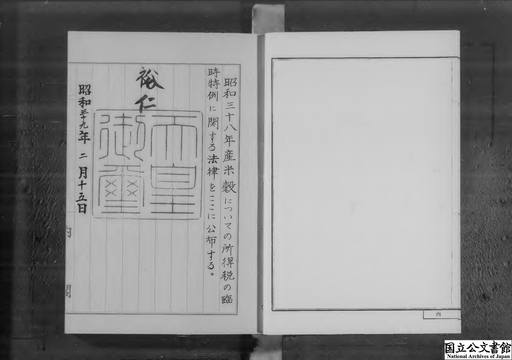 昭和三十八年産米穀についての所得税の臨
時特例に関する法律をここに公布する。
裕仁
天皇
御璽
昭和三十九年二月十五日
内
閣
四
国立公文書館
National Archives of Japan